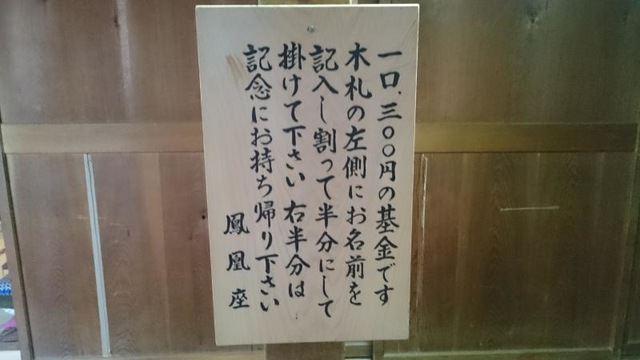 一口、三〇〇円の基金です
木札の左側にお名前を
記入し割って半分にして
掛けて下さい 右半分は
記念にお持ち帰り下さい
鳳凰座